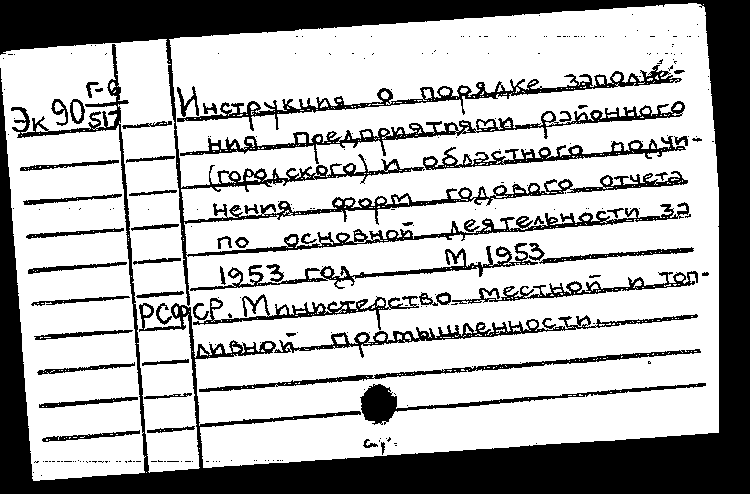 Эк90 Г-6/517
Инструкция о порядке заполне-
ния предприятиями районного
(городского) и областного подчи-
нения форм годового отчета
по основной деятельности за
1953 год М., 1953
РСФСР. Министерство местной и топ-
ливной промышленности.